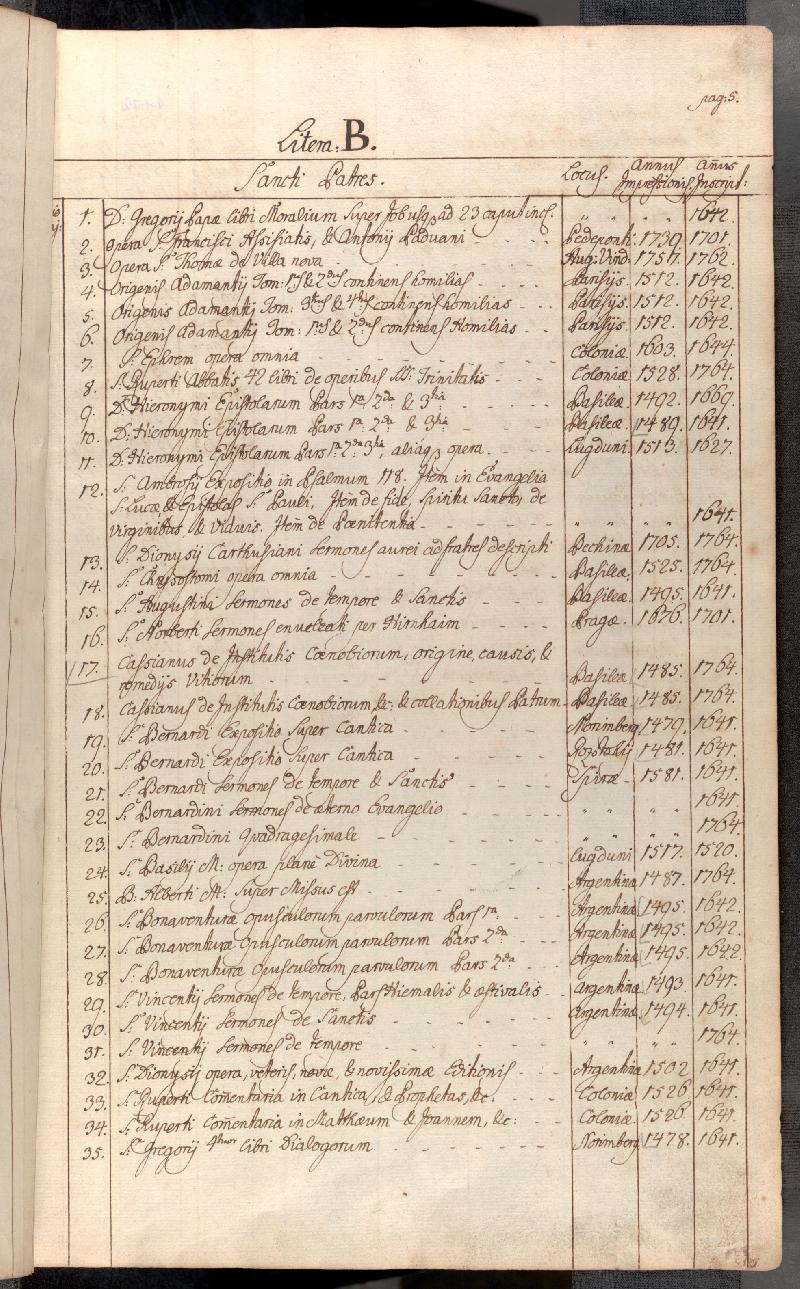 pag: 5.
Litera: B.
Sancti Patres. Locus. Annus Impressionis Añus Inscript:
1. D: Gregorij Papæ Libri Moralium super Job usq3 ad 23 caput incl. " " " " 1642.
2. Opera S. Francisci Assisiatis, & Antonij Paduani - - - Pedeponti. 1739. 1701.
3. Opera S. Thomæ de Villa nova - - - - - Aug: Vind: 1757. 1762.
4. Origenis Adamantij Tom: 1us & 2dus continens homilias - - - Parisijs. 1512. 1642.
5. Origenis Adamantij Tom: 3tius & 4tus continens homilias - - - Parisijs. 1512. 1642.
6. Origenis Adamantij Tom: 1us & 2dus continens Homilias - - - Parisijs. 1512. 1642.
7. S. Ephrem opera omnia - - - - - Coloniæ. 1603. 1644.
8. S. Ruperti Abbatis 42 libri de operibus SS: Trinitatis - - - Coloniæ. 1528. 1764.
9. D: Hieronymi Epistolarum Pars 1ra 2da & 3tia - - - Basileæ. 1492. 1669.
10. D: Hieronymi Epistolarum Pars 1ra 2da & 3tia - - - Basileæ. 1489. 1641.
11. D: Hieronymi Epistolarum Pars 1ra 2da 3tia, aliaq3 opera. - - Lugduni. 1513. 1627.
12. S. Ambrosij Expositio in Psalmum 118. Item in Evangelia
S. Lucæ, & Epistolas S. Pauli, Item de fide, Spiritu Sancto, de
Virginibus, & Viduis. Item de Pœnitentia - - - - - " " " " 1641.
13. S. Dionysij Carthusiani Sermones aurei ad fratres descripti Bechinæ 1705. 1764.
14. S. Chrysostomi opera omnia - - - - - Basileæ. 1525. 1764.
15. S. Augustini Sermones de tempore & Sanctis - - - Basileæ. 1495. 1641.
16. S. Norberti Sermones enucleati per Hirnhaim - - - Pragæ. 1676. 1701.
17. Cassianus de Institutis Cœnobiorum, origine, causis, &
remedijs Vitiorum - - - - - Basileæ 1485. 1764.
18. Cassianus de Institutis Cœnobiorum, &c: & collationibus Patrum - Basileæ. 1485. 1764.
19. S. Bernardi Expositio super Cantica - - - Norimberg 1479. 1641.
20. S. Bernardi Expositio super Cantica - - - Rozstochij 1481. 1641.
21. S. Bernardi Sermones de tempore & Sanctis - - - Spiræ - 1581. 1641.
22. S. Bernardini Sermones de æterno Evangelio - - - " " " " 1641.
23. S. Bernardini Quadragesimale - - - - " " " " 1764.
24. S. Basilij M: opera planè Divina - - - - Lugduni 1517. 1520.
25. B: Alberti M: super Missus est - - - - Argentinæ 1487. 1764.
26. S. Bonaventuræ opusculorum parvulorum Pars 1ra - - - Argentinæ 1495. 1642.
27. S. Bonaventuræ opusculorum parvulorum Pars 2da - - - Argentinæ 1495. 1642.
28. S. Bonaventuræ opusculorum parvulorum Pars 2da - - - Argentinæ 1495. 1642.
29. S. Vincentij Sermones de tempore, Pars Hiemalis & æstivalis - - Argentinæ 1493. 1641.
30. S. Vincentij Sermones de Sanctis - - - - Argentinæ. 1494. 1641.
31. S. Vincentij Sermones de tempore - - - - " " " " 1764.
32. S. Dionysij opera, veteris, novæ, & novissimæ Editionis - - - Argentinæ 1502 1641.
33. S. Ruperti Com̃entaria in Cantica, & Prophetas, &c. - - - Coloniæ. 1526 1641.
34. S. Ruperti Com̃entaria in Matthæum & Joannem, &c: - - - Coloniæ. 1526. 1641.
35. S. Gregorij 4tuor Libri Dialogorum - - - - - Norimberg 1478. 1641.